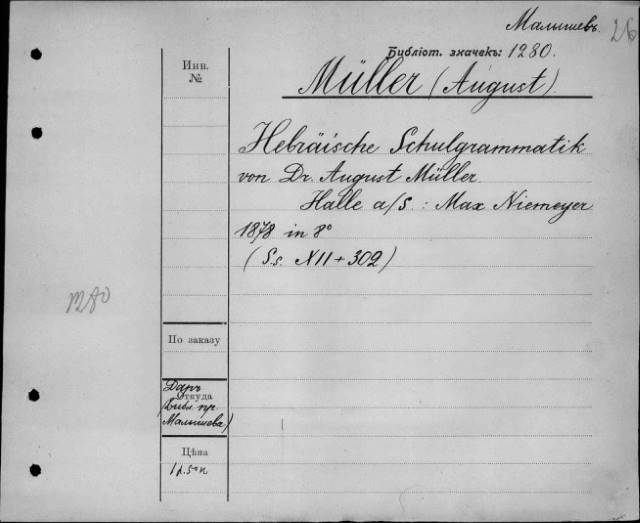 Малышевъ
26
Библіот. значекъ: 1280.
Инв.
№
Müller (August)
Hebräische Schulgrammatik
von Dr. August Müller.
Halle a/S. : Max Niemeyer
1878 in 8°
(S.s. XII + 302)
По заказу
Даръ
Откуда
(Библ. пр.
Малышева)
Цѣна
1 р. 50 к